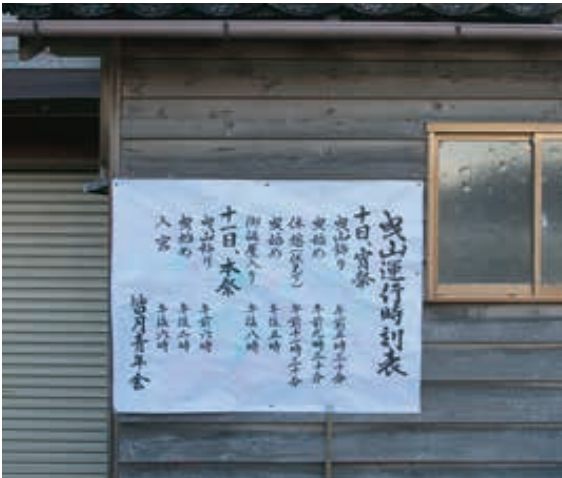 曳山運行時刻表
十日、宵祭
曳山飾り 午前五時三十分
曳始め 午前九時三十分
休憩 午前十一時三十分
曳始め 午後五時
御仮屋入り 午後八時
十一日、本祭
曳山飾り 午前六時
曳始め 午後八時
入宮 午後六時
皆月青年会